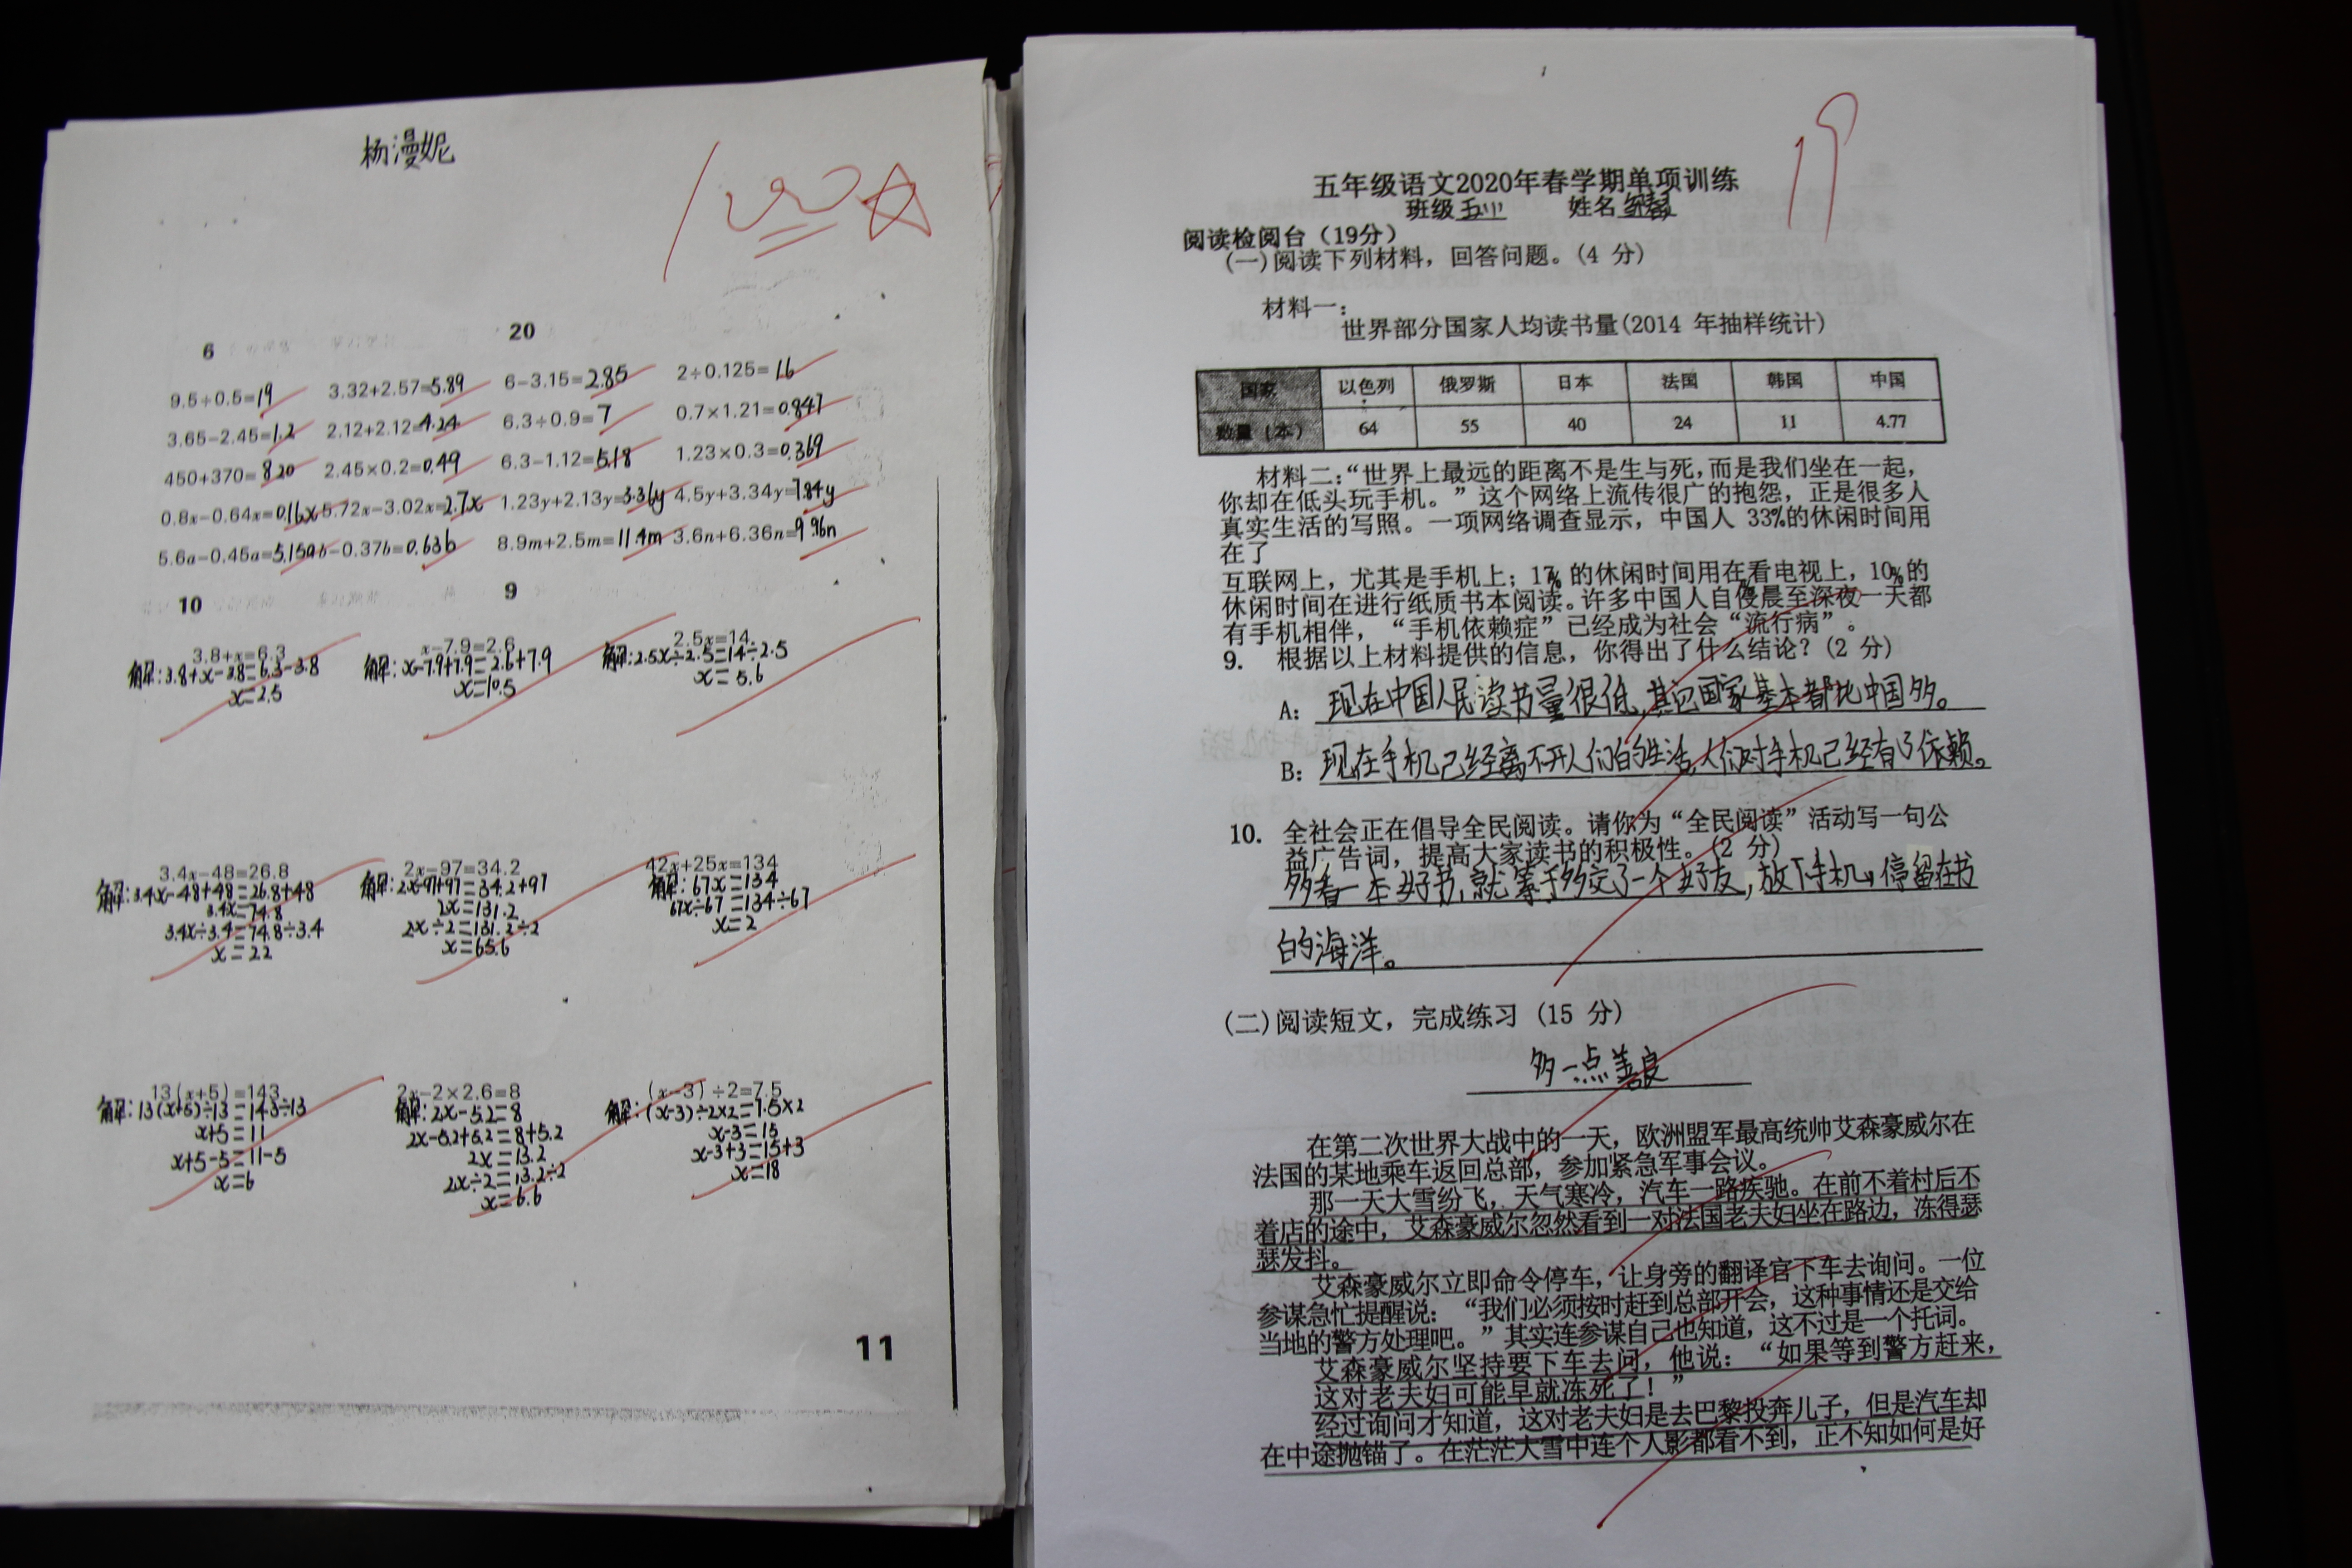 杨漫妮
100
6
20
9.5÷0.5=19 3.32+2.57=5.89 6-3.15=2.85 2÷0.125=16
3.65-2.45=1.2 2.12+2.12=4.24 6.3÷0.9=7 0.7×1.21=0.847
450+370=820 2.45×0.2=0.49 6.3-1.12=5.18 1.23×0.3=0.369
0.8x-0.64x=0.16x 5.72x-3.02x=2.7x 1.23y+2.13y=3.36y 4.5y+3.34y=7.84y
5.6a-0.45a=5.15a b-0.37b=0.63b 8.9m+2.5m=11.4m 3.6n+6.36n=9.96n
10
9
3.8+x=6.3
解:3.8+x-3.8=6.3-3.8
x=2.5
x-7.9=2.6
解:x-7.9+7.9=2.6+7.9
x=10.5
2.5x=14
解:2.5x÷2.5=14÷2.5
x=5.6
3.4x-48=26.8
解:3.4x-48+48=26.8+48
3.4x=74.8
3.4x÷3.4=74.8÷3.4
x=22
2x-97=34.2
解:2x-97+97=34.2+97
2x=131.2
2x÷2=131.2÷2
x=65.6
42x+25x=134
解:67x=134
67x÷67=134÷67
x=2
13(x+5)=143
解:13(x+5)÷13=143÷13
x+5=11
x+5-5=11-5
x=6
2x-2×2.6=8
解:2x-5.2=8
2x-5.2+5.2=8+5.2
2x=13.2
2x÷2=13.2÷2
x=6.6
(x-3)÷2=7.5
解:(x-3)÷2×2=7.5×2
x-3=15
x-3+3=15+3
x=18
11
19
五年级语文2020年春学期单项训练
班级 姓名
阅读检阅台（19分）
(一)阅读下列材料，回答问题。(4 分)
材料一：
世界部分国家人均读书量(2014 年抽样统计)
国家 以色列 俄罗斯 日本 法国 韩国 中国
数量（本） 64 55 40 24 11 4.77
材料二：“世界上最远的距离不是生与死，而是我们坐在一起，
你却在低头玩手机。”这个网络上流传很广的抱怨，正是很多人
真实生活的写照。一项网络调查显示，中国人 33%的休闲时间用
在了
互联网上，尤其是手机上；17% 的休闲时间用在看电视上，10%的
休闲时间在进行纸质书本阅读。许多中国人自侵晨至深夜一天都
有手机相伴，“手机依赖症”已经成为社会“流行病”。
9. 根据以上材料提供的信息，你得出了什么结论？(2 分)
A： 现在中国人民读书量很低,其它国家基本都比中国多。
B： 现在手机已经离不开人们的生活,人们对手机已经有了依赖。
10. 全社会正在倡导全民阅读。请你为“全民阅读”活动写一句公
益广告词，提高大家读书的积极性。(2 分)
多看一本好书,就等于多交了一个好友,放下手机,停留在书
的海洋。
(二)阅读短文，完成练习 (15 分)
多一点善良
在第二次世界大战中的一天，欧洲盟军最高统帅艾森豪威尔在
法国的某地乘车返回总部，参加紧急军事会议。
那一天大雪纷飞，天气寒冷，汽车一路疾驰。在前不着村后不
着店的途中，艾森豪威尔忽然看到一对法国老夫妇坐在路边，冻得瑟
瑟发抖。
艾森豪威尔立即命令停车，让身旁的翻译官下车去询问。一位
参谋急忙提醒说：“我们必须按时赶到总部开会，这种事情还是交给
当地的警方处理吧。”其实连参谋自己也知道，这不过是一个托词。
艾森豪威尔坚持要下车去问，他说：“如果等到警方赶来，
这对老夫妇可能早就冻死了！”
经过询问才知道，这对老夫妇是去巴黎投奔儿子，但是汽车却
在中途抛锚了。在茫茫大雪中连个人影都看不到，正不知如何是好